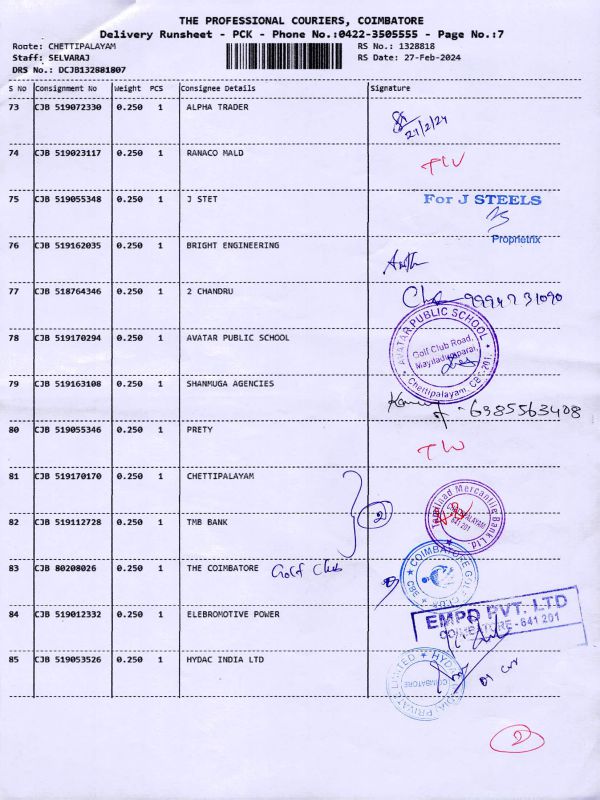 THE PROFESSIONAL COURIERS, COIMBATORE
Delivery Runsheet - PCK - Phone No.:0422-3505555 - Page No.:7
Route: CHETTIPALAYAM RS No.: 1328818
Staff: SELVARAJ RS Date: 27-Feb-2024
DRS No.: DCJB132881807
S No Consignment No Weight PCS Consignee Details Signature
73 CJB 519072330 0.250 1 ALPHA TRADER
27/2/24
74 CJB 519023117 0.250 1 RANACO MALD
75 CJB 519055348 0.250 1 J STET For J STEELS
Proprietrix
76 CJB 519162035 0.250 1 BRIGHT ENGINEERING
77 CJB 518764346 0.250 1 2 CHANDRU
AVATAR PUBLIC SCHOOL
78 CJB 519170294 0.250 1 AVATAR PUBLIC SCHOOL Golf Club Road,
Chettipalayam, CBE-201.
79 CJB 519163108 0.250 1 SHANMUGA AGENCIES
6385563408
80 CJB 519055346 0.250 1 PRETY
81 CJB 519170170 0.250 1 CHETTIPALAYAM
2 Tamilnad Mercantile Bank Ltd.
641 201
82 CJB 519112728 0.250 1 TMB BANK
83 CJB 80208026 0.250 1 THE COIMBATORE Golf Club COIMBATORE GOLF CLUB
84 CJB 519012332 0.250 1 ELEBROMOTIVE POWER EMPO PVT. LTD
COIMBATORE - 641 201
85 CJB 519053526 0.250 1 HYDAC INDIA LTD HYDAC INDIA PRIVATE LIMITED
COIMBATORE
2